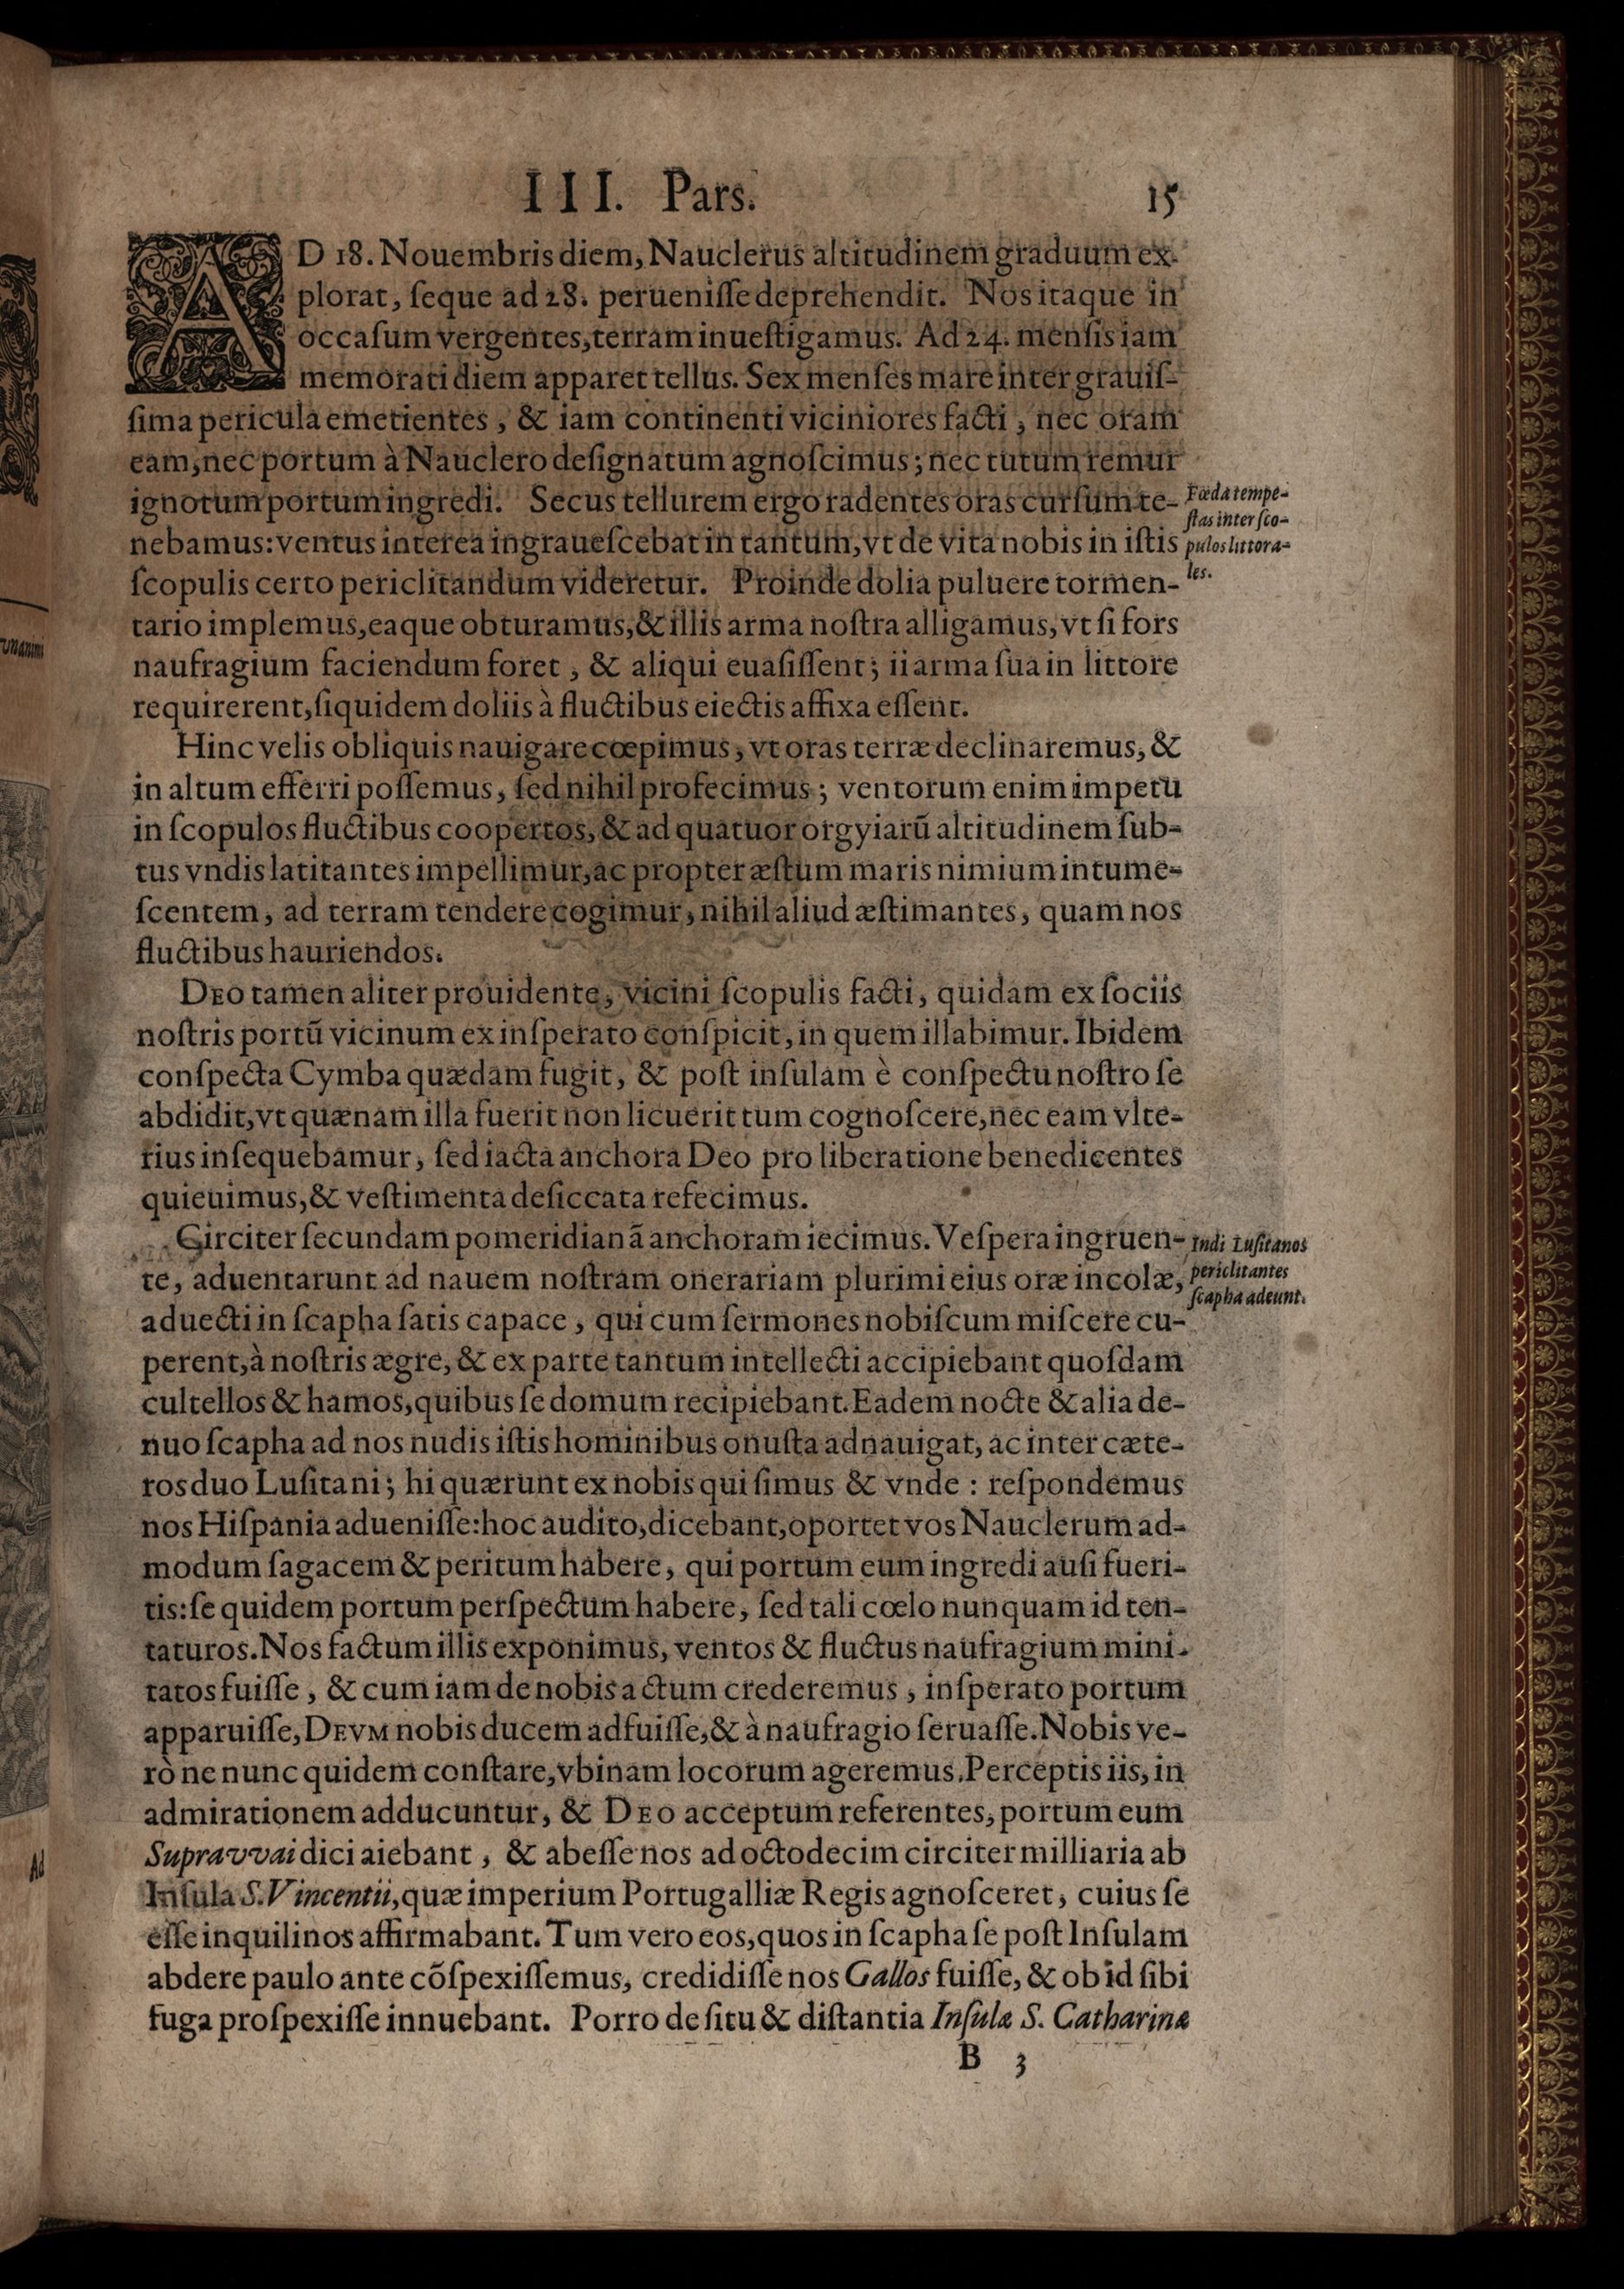 III. Pars. 15
AD 18. Nouembris diem, Nauclerus altitudinem graduum ex-
plorat, ſeque ad 28. perueniſſe deprehendit. Nos itaque in
occaſum vergentes, terram inueſtigamus. Ad 24. menſis iam
memorati diem apparet tellus. Sex menſes mare inter grauiſ-
ſima pericula emetientes, & iam continenti viciniores facti, nec oram
eam, nec portum à Nauclero deſignatum agnoſcimus; nec tutum remur
ignotum portum ingredi. Secus tellurem ergo radentes oras curſum te-
nebamus: ventus interea ingraueſcebat in tantum, vt de vita nobis in iſtis
ſcopulis certo periclitandum videretur. Proinde dolia puluere tormen-
tario implemus, eaque obturamus, & illis arma noſtra alligamus, vt ſi fors
naufragium faciendum foret, & aliqui euaſiſſent; ii arma ſua in littore
requirerent, ſiquidem doliis à fluctibus eiectis affixa eſſent.
Fœda tempe-
ſtas inter ſco-
pulos littora-
les.
Hinc velis obliquis nauigare cœpimus, vt oras terræ declinaremus, &
in altum efferri poſſemus, ſed nihil profecimus; ventorum enim impetu
in ſcopulos fluctibus coopertos, & ad quatuor orgyiarū altitudinem ſub-
tus vndis latitantes impellimur, ac propter æſtum maris nimium intume-
ſcentem, ad terram tendere cogimur, nihil aliud æſtimantes, quam nos
fluctibus hauriendos.
DEO tamen aliter prouidente, vicini ſcopulis facti, quidam ex ſociis
noſtris portū vicinum ex inſperato conſpicit, in quem illabimur. Ibidem
conſpecta Cymba quædam fugit, & poſt inſulam è conſpectu noſtro ſe
abdidit, vt quænam illa fuerit non licuerit tum cognoſcere, nec eam vlte-
rius inſequebamur, ſed iacta anchora Deo pro liberatione benedicentes
quieuimus, & veſtimenta deſiccata refecimus.
Circiter ſecundam pomeridianā anchoram iecimus. Veſpera ingruen-
te, aduentarunt ad nauem noſtram onerariam plurimi eius oræ incolæ,
aduecti in ſcapha ſatis capace, qui cum ſermones nobiſcum miſcere cu-
perent, à noſtris ægre, & ex parte tantum intellecti accipiebant quoſdam
cultellos & hamos, quibus ſe domum recipiebant. Eadem nocte & alia de-
nuo ſcapha ad nos nudis iſtis hominibus onuſta adnauigat, ac inter cæte-
ros duo Luſitani; hi quærunt ex nobis qui ſimus & vnde: reſpondemus
nos Hiſpania adueniſſe: hoc audito, dicebant, oportet vos Nauclerum ad-
modum ſagacem & peritum habere, qui portum eum ingredi auſi fueri-
tis: ſe quidem portum perſpectum habere, ſed tali cœlo nunquam id ten-
taturos. Nos factum illis exponimus, ventos & fluctus naufragium mini-
tatos fuiſſe, & cum iam de nobis actum crederemus, inſperato portum
apparuiſſe, DEVM nobis ducem adfuiſſe, & à naufragio ſeruaſſe. Nobis ve-
rò ne nunc quidem conſtare, vbinam locorum ageremus. Perceptis iis, in
admirationem adducuntur, & DEO acceptum referentes, portum eum
Supravvai dici aiebant, & abeſſe nos ad octodecim circiter milliaria ab
Inſula S. Vincentii, quæ imperium Portugalliæ Regis agnoſceret, cuius ſe
eſſe inquilinos affirmabant. Tum vero eos, quos in ſcapha ſe poſt Inſulam
abdere paulo ante cōſpexiſſemus, credidiſſe nos Gallos fuiſſe, & ob id ſibi
fuga proſpexiſſe innuebant. Porro de ſitu & diſtantia Inſulæ S. Catharinæ
Indi Luſitanos
periclitantes
ſcapha adeunt.
B 3
Ad